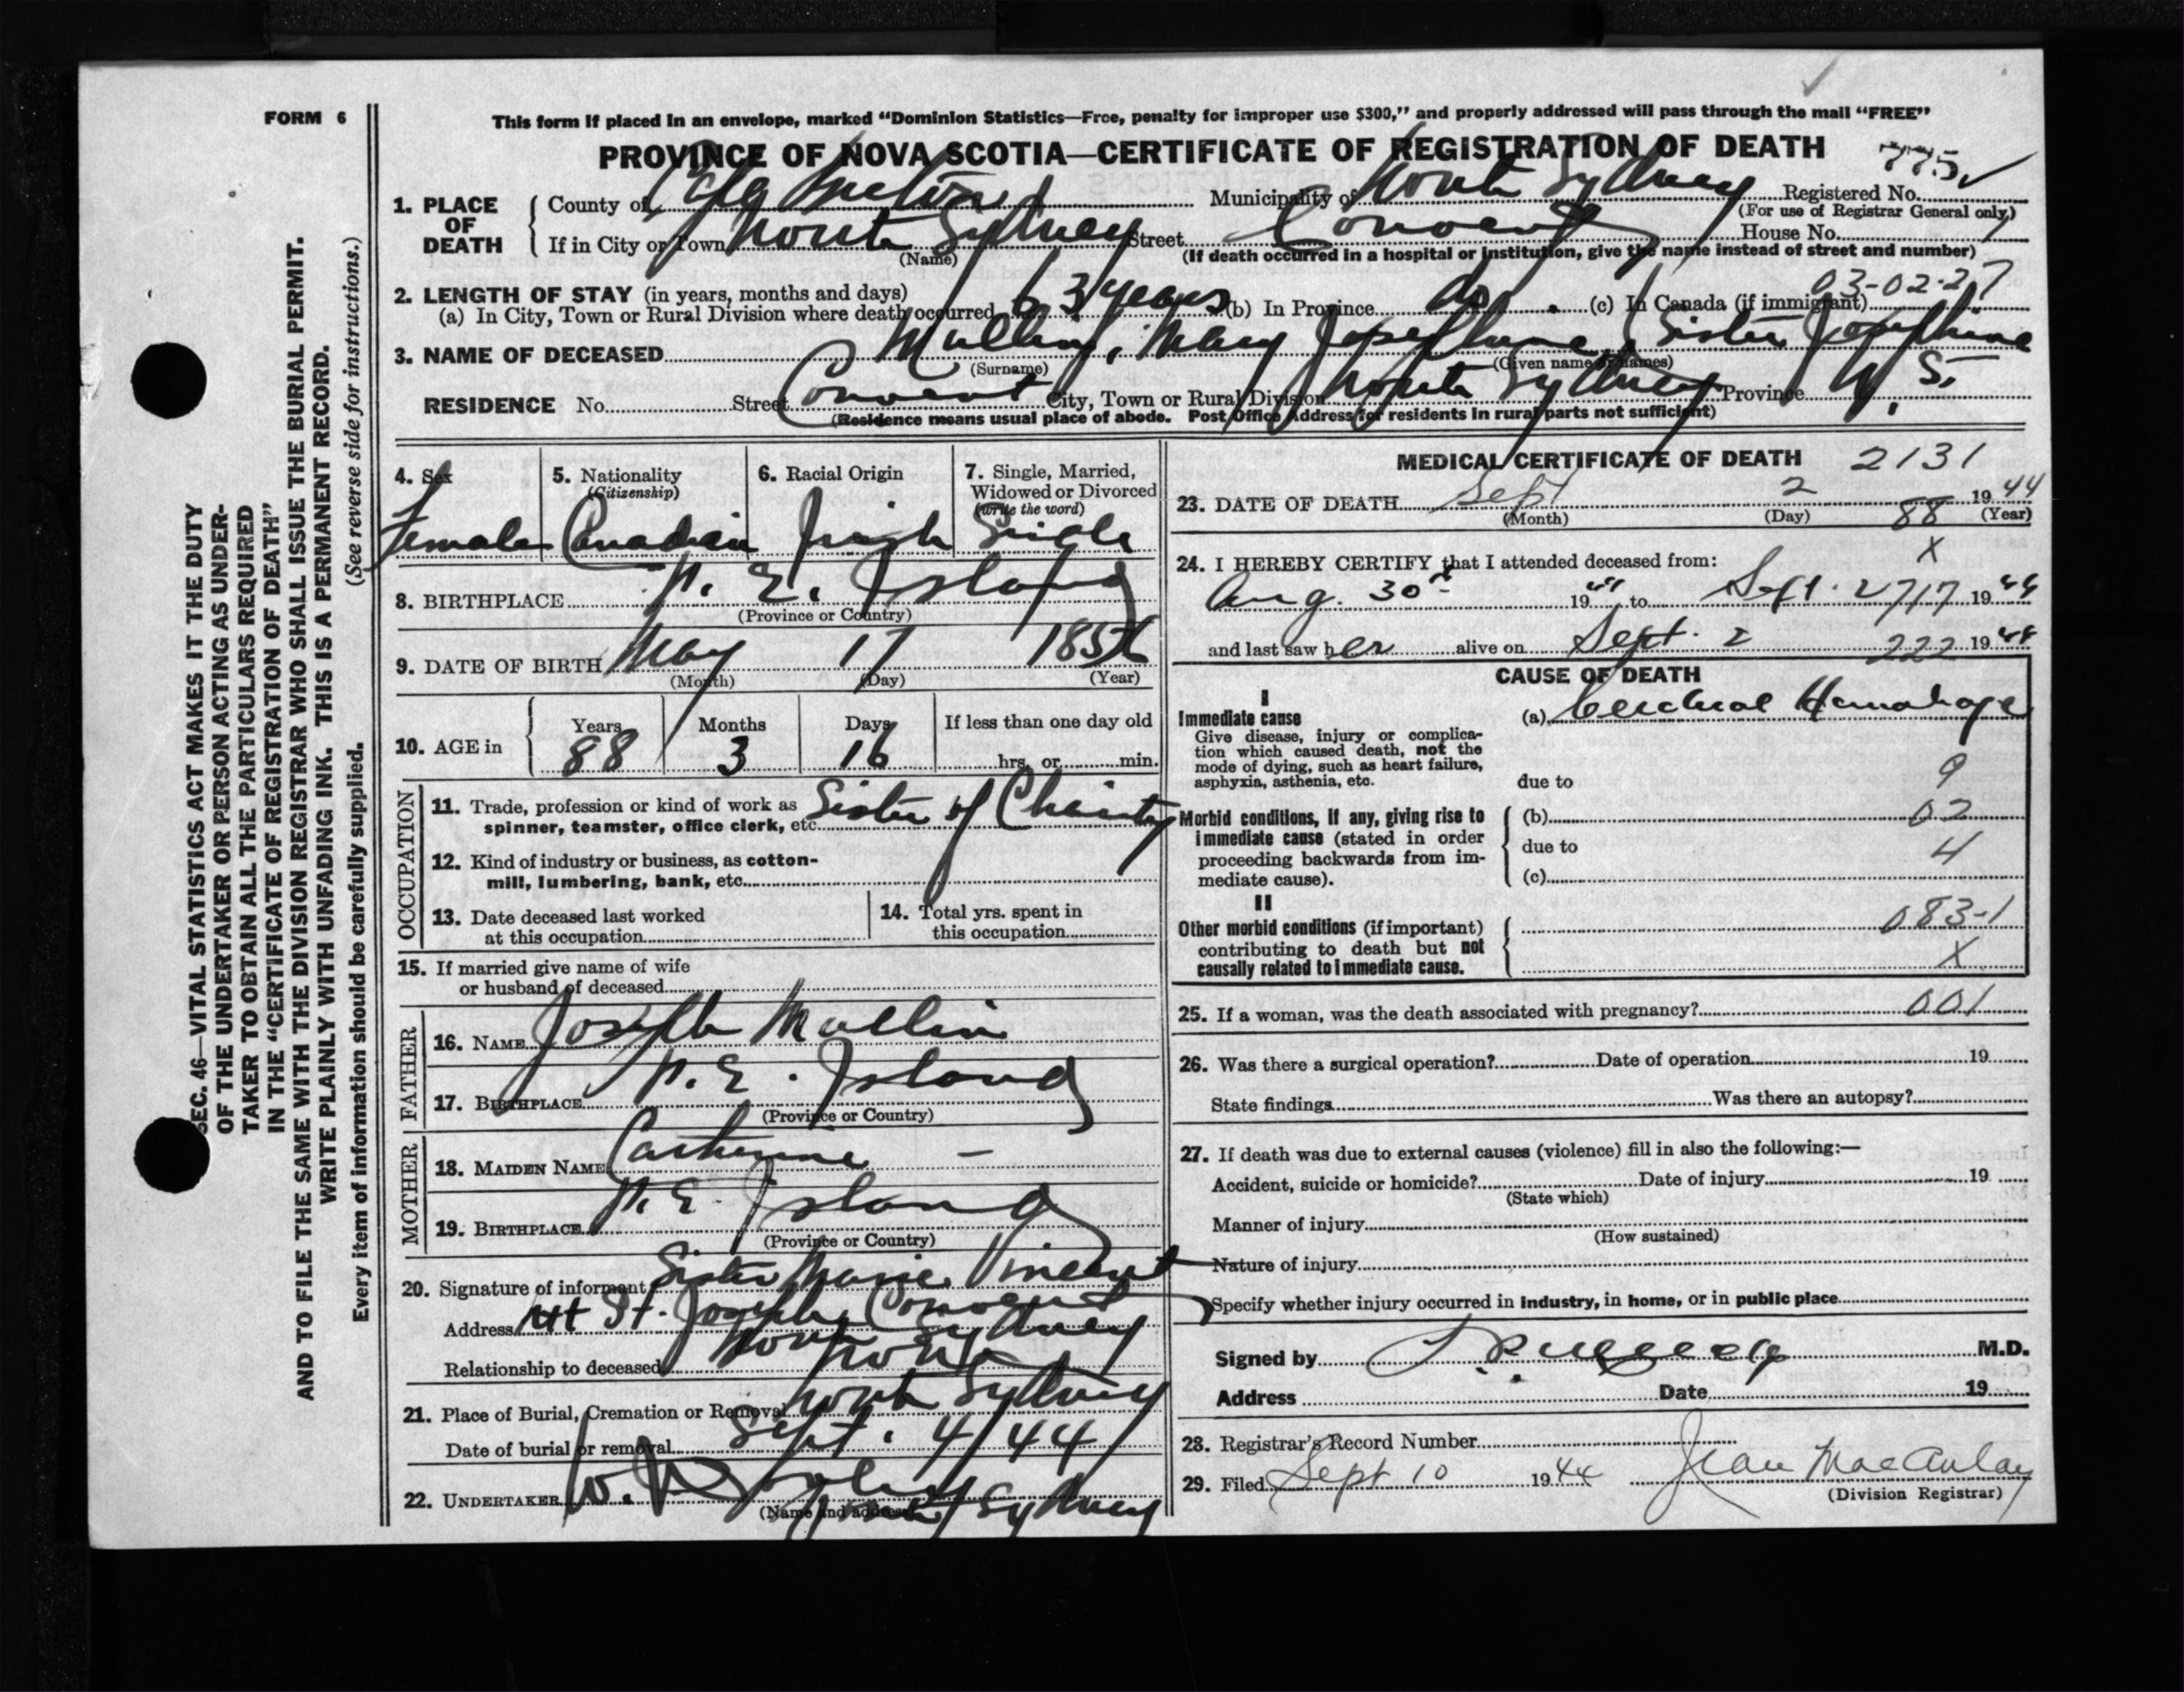 FORM 6
This form if placed in an envelope, marked “Dominion Statistics—Free, penalty for improper use $300,” and properly addressed will pass through the mail “FREE”
PROVINCE OF NOVA SCOTIA—CERTIFICATE OF REGISTRATION OF DEATH 775
1. PLACE OF DEATH
County of Cape Breton Municipality of North Sydney Registered No.
(For use of Registrar General only)
If in City or Town North Sydney Street Convent House No.
(Name) (If death occurred in a hospital or institution, give the name instead of street and number)
03-02-27
2. LENGTH OF STAY (in years, months and days)
(a) In City, Town or Rural Division where death occurred 63 years (b) In Province do. (c) In Canada (if immigrant)
3. NAME OF DECEASED Mullin, Mary Josephine, Sister Josephine
(Surname) (Given name or names)
RESIDENCE No. Street Convent City, Town or Rural Division North Sydney Province N. S.
(Residence means usual place of abode. Post Office Address for residents in rural parts not sufficient)
4. Sex
Female
5. Nationality
(Citizenship)
Canadian
6. Racial Origin
Irish
7. Single, Married,
Widowed or Divorced
(write the word)
Single
8. BIRTHPLACE P. E. Island
(Province or Country)
9. DATE OF BIRTH May 17 1856
(Month) (Day) (Year)
10. AGE in
Years Months Days If less than one day old
88 3 16 hrs. or min.
OCCUPATION
11. Trade, profession or kind of work as
spinner, teamster, office clerk, etc. Sister of Charity
12. Kind of industry or business, as cotton-
mill, lumbering, bank, etc.
13. Date deceased last worked
at this occupation
14. Total yrs. spent in
this occupation
15. If married give name of wife
or husband of deceased
FATHER
16. NAME Joseph Mullin
17. BIRTHPLACE P. E. Island
(Province or Country)
MOTHER
18. MAIDEN NAME Catherine —
19. BIRTHPLACE P. E. Island
(Province or Country)
20. Signature of informant Sister Marie Vincent
Address Mt St. Joseph Convent
North Sydney
Relationship to deceased none
21. Place of Burial, Cremation or Removal North Sydney
Date of burial or removal Sept. 4/44
22. UNDERTAKER W.
(Name and address) North Sydney
MEDICAL CERTIFICATE OF DEATH 2131
23. DATE OF DEATH Sept 2 1944
(Month) (Day) 88 (Year)
24. I HEREBY CERTIFY that I attended deceased from: X
Aug. 30th 1944 to Sept. 2 717 1944
and last saw her alive on Sept. 2 222 1944
CAUSE OF DEATH
I
Immediate cause (a) Cerebral Hemorhage
Give disease, injury or complica-
tion which caused death, not the
mode of dying, such as heart failure,
asphyxia, asthenia, etc.
due to 9
Morbid conditions, if any, giving rise to
immediate cause (stated in order
proceeding backwards from im-
mediate cause).
(b) 02
due to 4
(c)
II
Other morbid conditions (if important)
contributing to death but not
causally related to immediate cause.
083-1
X
25. If a woman, was the death associated with pregnancy? 001
26. Was there a surgical operation? Date of operation 19
State findings Was there an autopsy?
27. If death was due to external causes (violence) fill in also the following:—
Accident, suicide or homicide? Date of injury 19
(State which)
Manner of injury
(How sustained)
Nature of injury
Specify whether injury occurred in industry, in home, or in public place
Signed by M.D.
Address Date 19
28. Registrar's Record Number
29. Filed Sept 10 1944 Jean MacAulay
(Division Registrar)
SEC. 46—VITAL STATISTICS ACT MAKES IT THE DUTY
OF THE UNDERTAKER OR PERSON ACTING AS UNDER-
TAKER TO OBTAIN ALL THE PARTICULARS REQUIRED
IN THE “CERTIFICATE OF REGISTRATION OF DEATH”
AND TO FILE THE SAME WITH THE DIVISION REGISTRAR WHO SHALL ISSUE THE BURIAL PERMIT.
WRITE PLAINLY WITH UNFADING INK. THIS IS A PERMANENT RECORD.
(See reverse side for instructions.)
Every item of information should be carefully supplied.